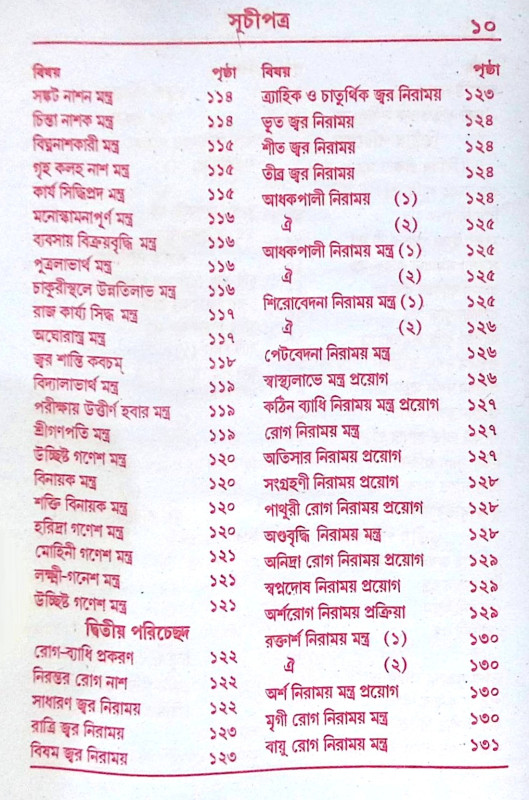 সূচীপত্র ১০
বিষয় পৃষ্ঠা
সঙ্কট নাশন মন্ত্র ১১৪
চিন্তা নাশক মন্ত্র ১১৪
বিঘ্ননাশকারী মন্ত্র ১১৫
গৃহ কলহ নাশ মন্ত্র ১১৫
কার্য সিদ্ধিপ্রদ মন্ত্র ১১৫
মনোস্কামনাপূর্ণ মন্ত্র ১১৬
ব্যবসায় বিক্রয়বৃদ্ধি মন্ত্র ১১৬
পুত্রলাভার্থ মন্ত্র ১১৬
চাকুরীস্থলে উন্নতিলাভ মন্ত্র ১১৬
রাজ কার্য্য সিদ্ধ মন্ত্র ১১৭
অঘোরাস্ত্র মন্ত্র ১১৭
জ্বর শান্তি কবচম্ ১১৮
বিদ্যালাভার্থ মন্ত্র ১১৯
পরীক্ষায় উত্তীর্ণ হবার মন্ত্র ১১৯
শ্রীগণপতি মন্ত্র ১১৯
উচ্ছিষ্ট গণেশ মন্ত্র ১২০
বিনায়ক মন্ত্র ১২০
শক্তি বিনায়ক মন্ত্র ১২০
হরিদ্রা গণেশ মন্ত্র ১২০
মোহিনী গণেশ মন্ত্র ১২১
লক্ষ্মী-গনেশ মন্ত্র ১২১
উচ্ছিষ্ট গণেশ মন্ত্র ১২১
দ্বিতীয় পরিচেছদ
রোগ-ব্যাধি প্রকরণ ১২২
নিরন্তর রোগ নাশ ১২২
সাধারণ জ্বর নিরাময় ১২২
রাত্রি জ্বর নিরাময় ১২৩
বিষম জ্বর নিরাময় ১২৩
বিষয় পৃষ্ঠা
ত্র্যাহিক ও চাতুর্থিক জ্বর নিরাময় ১২৩
ভূত জ্বর নিরাময় ১২৪
শীত জ্বর নিরাময় ১২৪
তীব্র জ্বর নিরাময় ১২৪
আধকপালী নিরাময় (১) ১২৪
ঐ (২) ১২৫
আধকপালী নিরাময় মন্ত্র (১) ১২৫
ঐ (২) ১২৫
শিরোবেদনা নিরাময় মন্ত্র (১) ১২৫
ঐ (২) ১২৬
পেটবেদনা নিরাময় মন্ত্র ১২৬
স্বাস্থ্যলাভে মন্ত্র প্রয়োগ ১২৬
কঠিন ব্যাধি নিরাময় মন্ত্র প্রয়োগ ১২৭
রোগ নিরাময় মন্ত্র ১২৭
অতিসার নিরাময় প্রয়োগ ১২৭
সংগ্রহণী নিরাময় প্রয়োগ ১২৮
পাথুরী রোগ নিরাময় প্রয়োগ ১২৮
অণ্ডবৃদ্ধি নিরাময় মন্ত্র ১২৮
অনিদ্রা রোগ নিরাময় প্রয়োগ ১২৯
স্বপ্নদোষ নিরাময় প্রয়োগ ১২৯
অর্শরোগ নিরাময় প্রক্রিয়া ১২৯
রক্তার্শ নিরাময় মন্ত্র (১) ১৩০
ঐ (২) ১৩০
অর্শ নিরাময় মন্ত্র প্রয়োগ ১৩০
মৃগী রোগ নিরাময় মন্ত্র ১৩০
বায়ু রোগ নিরাময় মন্ত্র ১৩১